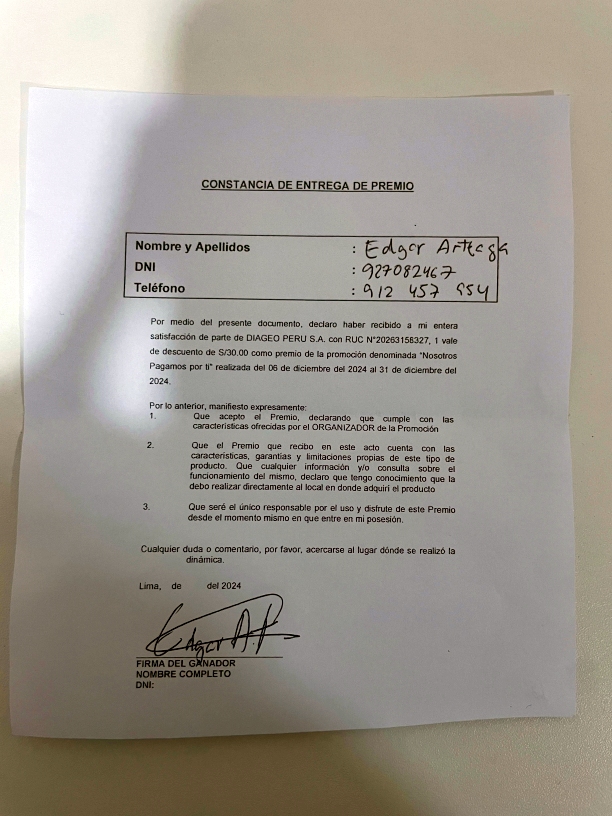 CONSTANCIA DE ENTREGA DE PREMIO
Nombre y Apellidos : Edgar Arteaga
DNI : 927082467
Teléfono : 912 457 954
Por medio del presente documento, declaro haber recibido a mi entera
satisfacción de parte de DIAGEO PERU S.A. con RUC N°20263158327, 1 vale
de descuento de S/30.00 como premio de la promoción denominada "Nosotros
Pagamos por ti" realizada del 06 de diciembre del 2024 al 31 de diciembre del
2024.
Por lo anterior, manifiesto expresamente:
1. Que acepto el Premio, declarando que cumple con las
características ofrecidas por el ORGANIZADOR de la Promoción
2. Que el Premio que recibo en este acto cuenta con las
características, garantías y limitaciones propias de este tipo de
producto. Que cualquier información y/o consulta sobre el
funcionamiento del mismo, declaro que tengo conocimiento que la
debo realizar directamente al local en donde adquirí el producto
3. Que seré el único responsable por el uso y disfrute de este Premio
desde el momento mismo en que entre en mi posesión.
Cualquier duda o comentario, por favor, acercarse al lugar dónde se realizó la
dinámica.
Lima, de del 2024
Edgar A.
FIRMA DEL GANADOR
NOMBRE COMPLETO
DNI: